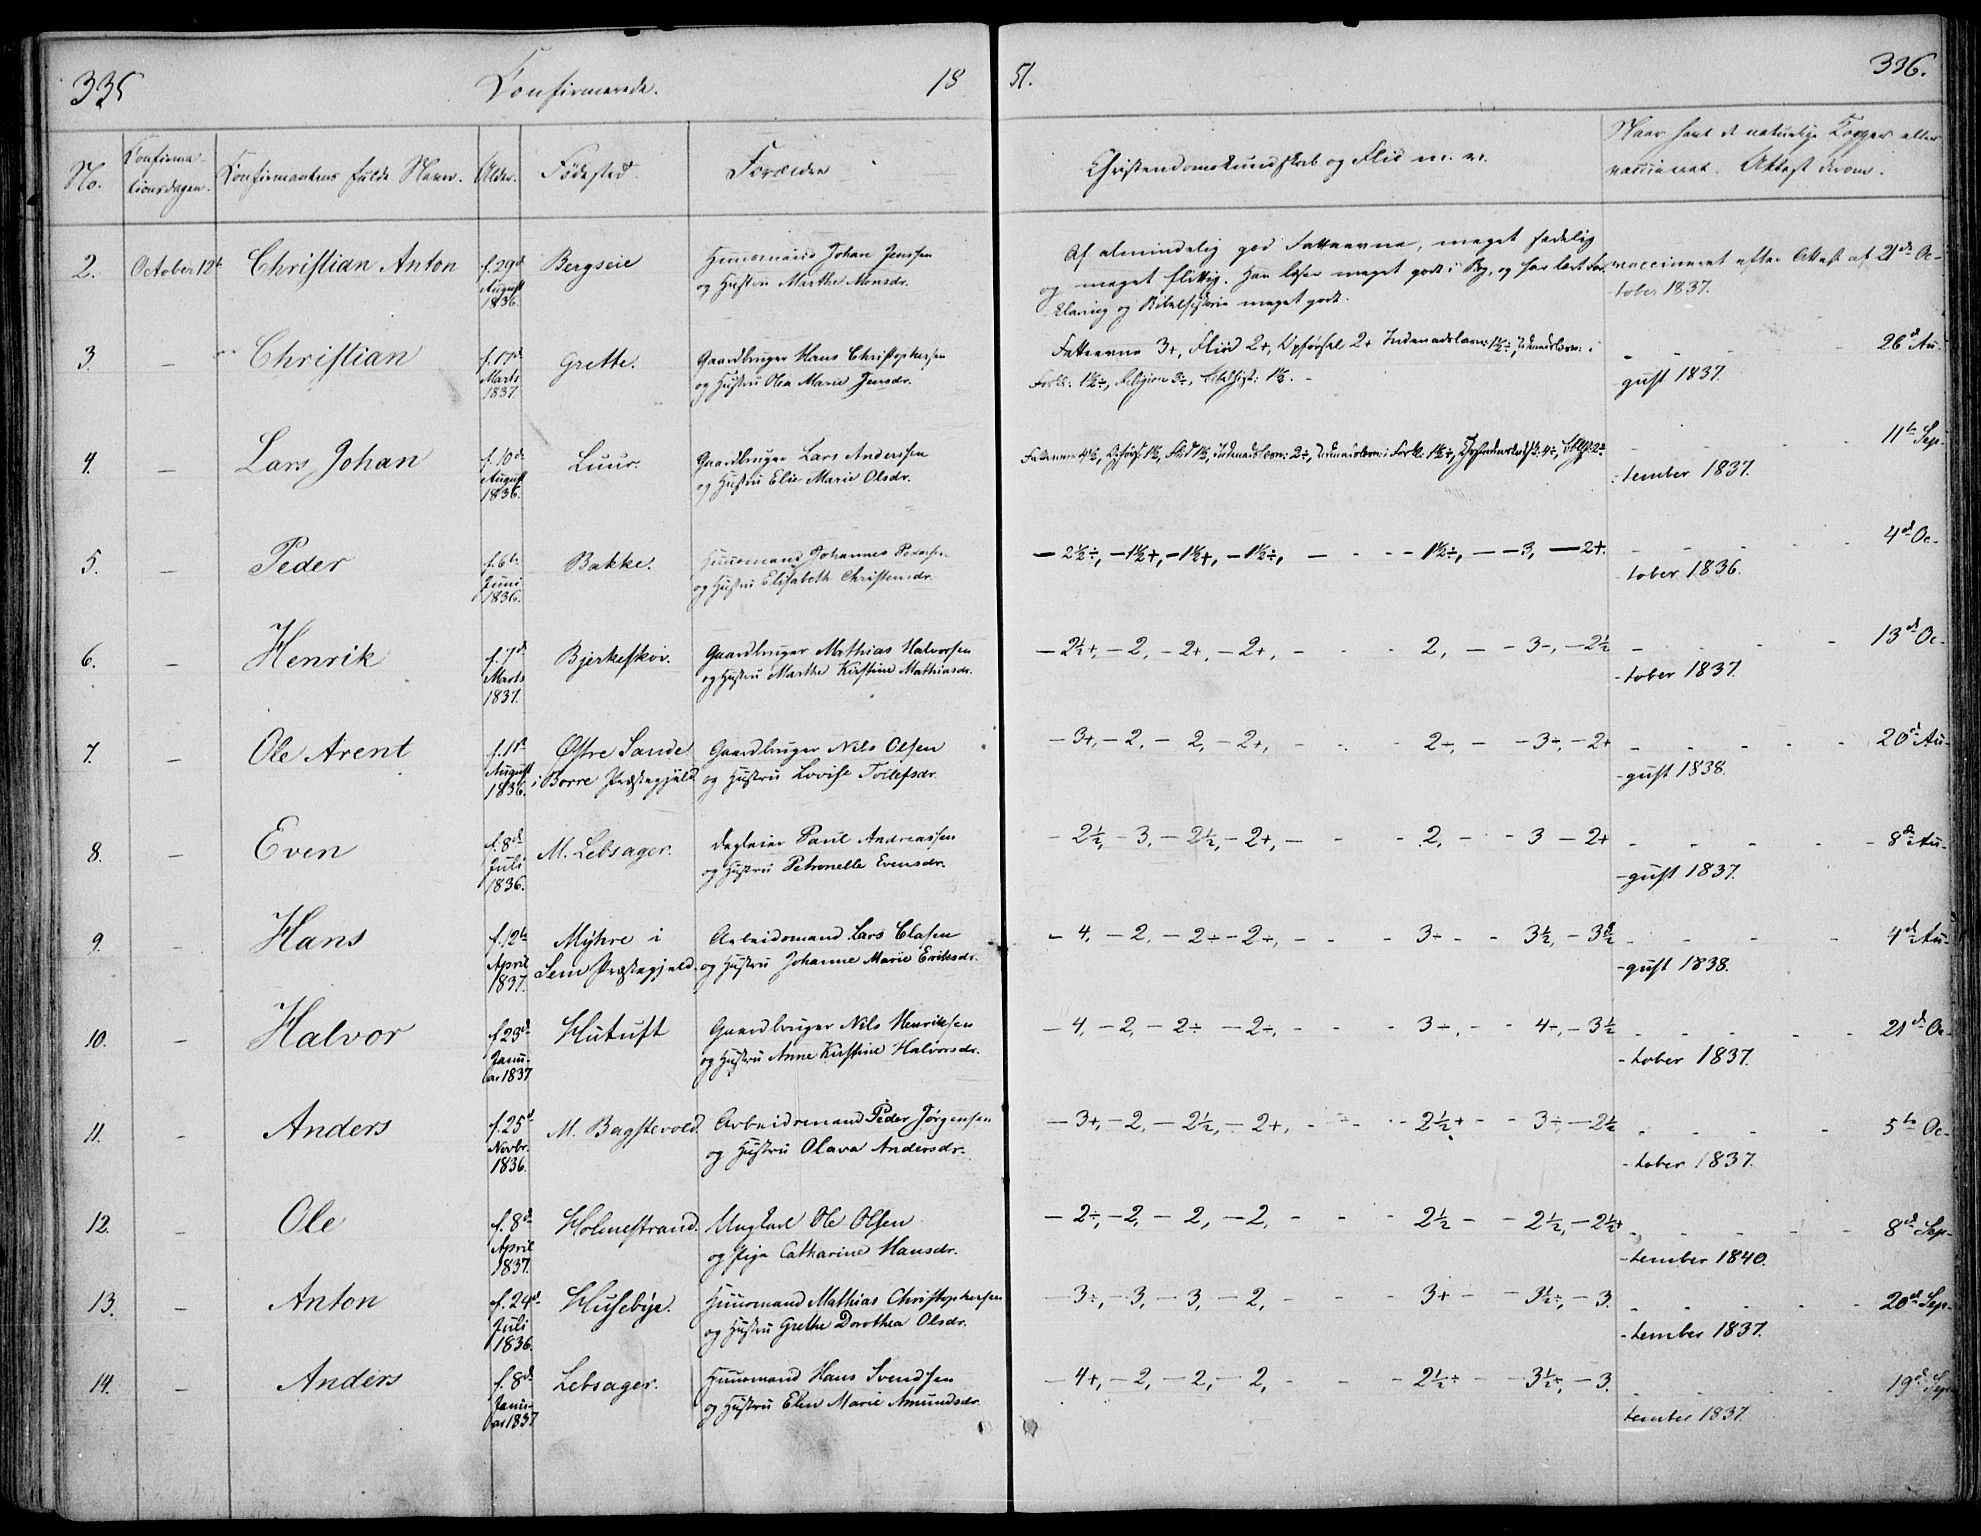 335 Confirmerede. 18 51. 336.
No. Confirma- tionsdagen. Confirmantens fulde Navn. Alder. Fødested. Forældre Christendomskundskab og Flid m. v. Naar havt de naturlige Kopper eller
vaccineret. Attest derom.
2. October 12te Christian Anton f. 29de August 1836. Bergseie Huusmand Johan Jensen
og Hustru Marthe Monsdr.
Af almindelig god Fatteevne, meget sædelig
og meget flittig. Han læser meget godt i Bog, og har lært For-
klaring og Bibelhistorie meget godt.
vaccineret efter Attest af 21de Oc-
tober 1837.
3. — Christian f. 17de Marts 1837. Grette. Gaardbruger Hans Christophersen
og Hustru Olea Marie Jensdr.
Fatteevne 3+, Fliid 2+, Opførsel 2+ Indenadslæsn: 1½÷, Udenadslæsn: i
Forkl: 1½÷, Religion 3÷, Bibelhist: 1½. -
- - - - 26de Au-
gust 1837.
4. — Lars Johan f. 10de August 1836. Luur. Gaardbruger Lars Andersen
og Hustru Elie Marie Olsdr.
Fatteevne 4½, Opførs: 1½, Flid 1½, Indenadslæsn: 2÷, Udenadslæsn: i Forkl: 1½÷, Christendomskundsk: 4÷, Bblhst: 2÷
- - - 11te Sep-
tember 1837.
5. — Peder f. 6te Juni 1836. Bakke. Huusmand Johannes Pedersen
og Hustru Elisabeth Christensdr.
— 2½÷, — 1½+, — 1½+, — 1½÷, — - - - 1½÷, — — 3, — 2+.
- - - - 4de Oc-
tober 1836.
6. — Henrik f. 7de Marts 1837. Bjerkeskov. Gaardbruger Mathias Halvorsen
og Hustru Marthe Kirstine Mathiasdr.
— 2½+, — 2, — 2+, — 2+, - - - 2, — - 3-, — 2½
- - - 13de Oc-
tober 1837.
7. — Ole Arent f. 1ste August 1836. Østre Sande i Borre Præstegjæld Gaardbruger Nils Olsen
og Hustru Lovise Tollefsdr.
— 3+, — 2, — 2, — 2+, - - - 2÷, - - 3÷, — 2+
- - - - 20de Au-
gust 1838.
8. — Even f. 8de Juli 1836. M. Lebsager. Dagleier Paul Andreassen
og Hustru Petronelle Evensdr.
— 2½, — 3, — 2½, — 2+, — - - 2, - - 3 — 2+
- - - - 8de Au-
gust 1837.
9. - Hans f. 12te April 1837. Myhre i Sem Præstegjeld. Arbeidsmand Lars Clasen
og Hustru Johanne Marie Eriksdr.
— 4, — 2, — 2÷ — 2÷, - - - 3÷ - - 3½, — 3½
- - - - 4de Au-
gust 1838.
10. - Halvor f. 29de Janu- ar 1837 Hutuft Gaardbruger Nils Henriksen
og Hustru Anne Kirstine Halvorsdr.
— 4, — 2, — 2÷ — 2÷, - - - 3÷, - - 4÷, — 3½
- - - - 21de Oc-
tober 1837.
11. - Anders f. 25de Novbr. 1836. M. Bagstevold. Arbeidsmand Peder Jørgensen
og Hustru Olava Andersdr.
— 3+, — 2, — 2½, — 2+, - - - 2½+ - - 3÷, — 2½
- - - - 5te Oc-
tober 1837.
12. - Ole f. 8de April 1837. Holmestrand. Ungkarl Ole Olsen
og Pige Catharine Hansdr.
— 2÷, — 2, — 2, — 2, - - - 2½ - - 2½, — 2½+
- - - - 8de Sep-
tember 1840.
13. - Anton f. 24de Juli 1836. Husebye. Huusmand Mathias Christophersen
og Hustru Grethe Dorothea Olsdr.
— 3÷, — 3, — 3, — 2, - - - 3+ - - 3½÷, — 3.
- - - - 20de Sep-
tember 1837.
14. - Anders f. 8de Janu- ar 1837 Lebsager. Huusmand Hans Svendsen
og Hustru Elen Marie Amundsdr.
— 4+, — 2, — 2, — 2, - - - 2½÷ - - 3½÷, — 3.
- - - - 19de Sep-
tember 1837.